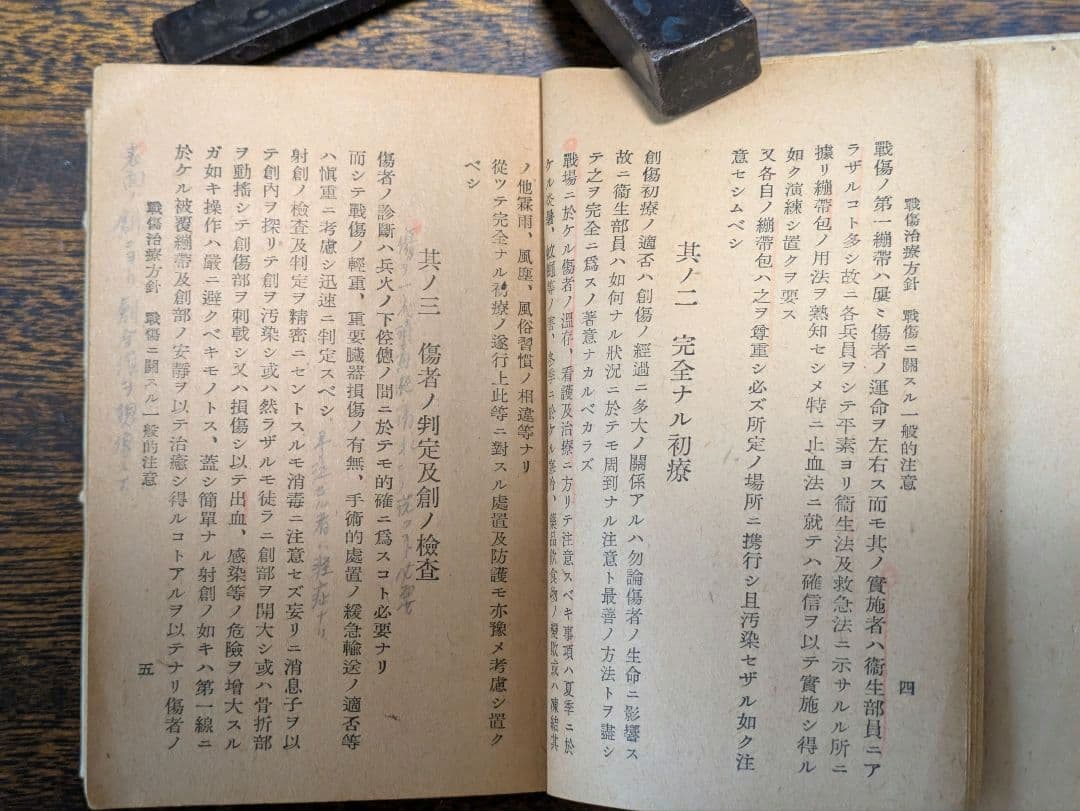 戰傷治療方針　戰傷ニ關スル一般的注意
四
戰傷ノ第一繃帶ハ屢〻傷者ノ運命ヲ左右ス而モ其ノ實施者ハ衞生部員ニア
ラザルコト多シ故ニ各兵員ヲシテ平素ヨリ衞生法及救急法ニ示サルル所ニ
據リ繃帶包ノ用法ヲ熟知セシメ特ニ止血法ニ就テハ確信ヲ以テ實施シ得ル
如ク演練シ置クヲ要ス
又各自ノ繃帶包ハ之ヲ尊重シ必ズ所定ノ場所ニ携行シ且汚染セザル如ク注
意セシムベシ
其ノ二　完全ナル初療
創傷初療ノ適否ハ創傷ノ經過ニ多大ノ關係アルハ勿論傷者ノ生命ニ影響ス
故ニ衞生部員ハ如何ナル狀況ニ於テモ周到ナル注意ト最善ノ方法トヲ盡シ
テ之ヲ完全ニ爲スノ著意ナカルベカラズ
戰場ニ於ケル傷者ノ溫存、看護及治療ニ方リテ注意スベキ事項ハ夏季ニ於
ケル炎暑、蚊蠅等ノ害、冬季ニ於ケル寒冷、藥品飮食物ノ變敗或ハ凍結其
ノ他霖雨、風塵、風俗習慣ノ相違等ナリ
從ツテ完全ナル初療ノ遂行上此等ニ對スル處置及防護モ亦豫メ考慮シ置ク
ベシ
其ノ三　傷者ノ判定及創ノ檢査
傷者ノ診斷ハ兵火ノ下倥傯ノ間ニ於テモ的確ニ爲スコト必要ナリ
而シテ戰傷ノ輕重、重要臟器損傷ノ有無、手術的處置ノ緩急輸送ノ適否等
ハ愼重ニ考慮シ迅速ニ判定スベシ
射創ノ檢査及判定ヲ精密ニセントスルモ消毒ニ注意セズ妄リニ消息子ヲ以
テ創內ヲ探リテ創ヲ汚染シ或ハ然ラザルモ徒ラニ創部ヲ開大シ或ハ骨折部
ヲ動搖シテ創傷部ヲ刺戟シ又ハ損傷シ以テ出血、感染等ノ危險ヲ增大スル
ガ如キ操作ハ嚴ニ避クベキモノトス、蓋シ簡單ナル射創ノ如キハ第一線ニ
於ケル被覆繃帶及創部ノ安靜ヲ以テ治癒シ得ルコトアルヲ以テナリ傷者ノ
戰傷治療方針　戰傷ニ關スル一般的注意
五